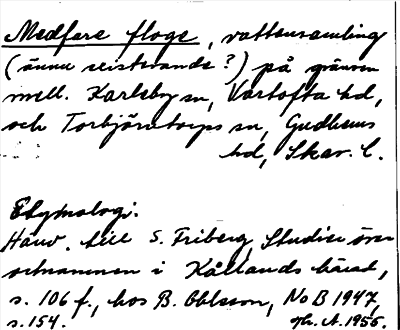 Medfare floge, vattensamling
(ännu existerande?) på gränsen
mell. Karleby sn, Vartofta hd,
och Torbjörntorps sn, Gudhems
hd, Skar. l.
Etymologi.
Hänv. till S. Friberg, Studier över
ortnamnen i Kållands härad,
s. 106 f., hos B. Ohlsson, NoB 1947,
s. 154. A. 1956.